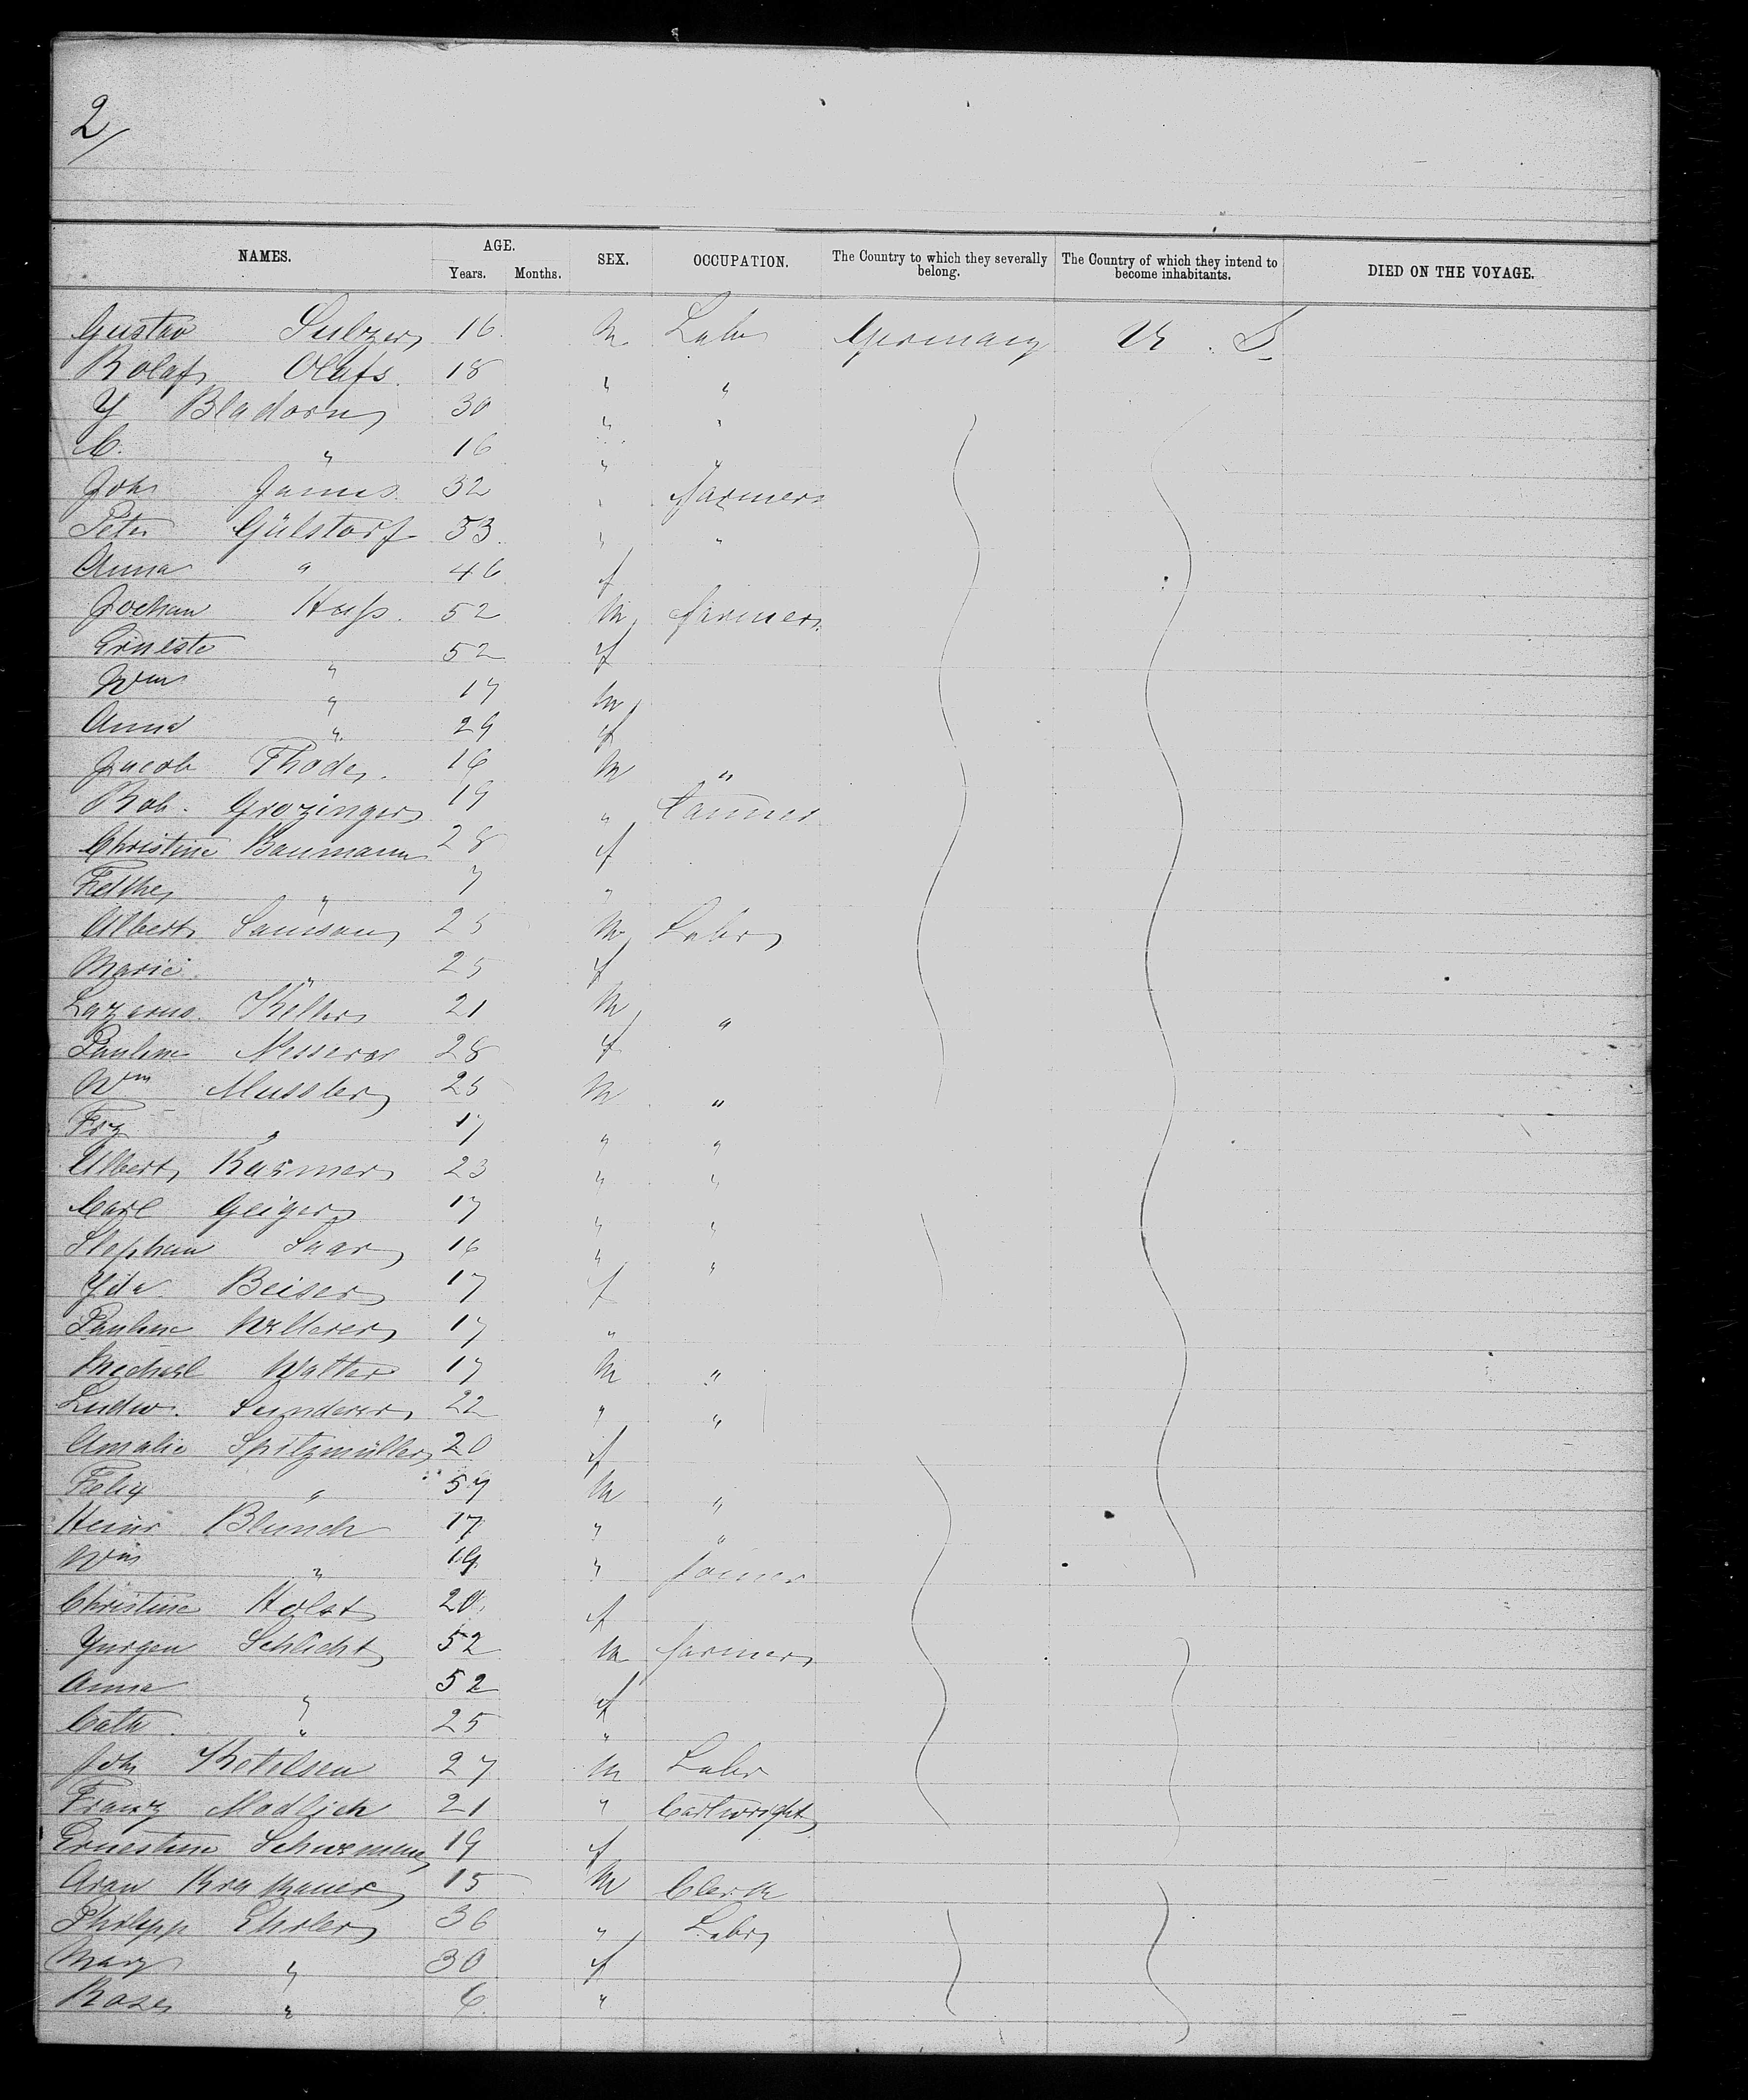 2/
NAMES. AGE. Years. Months. SEX. OCCUPATION. The Country to which they severally belong. The Country of which they intend to become inhabitants. DIED ON THE VOYAGE.
Gustav Sulzer 16 m Labr Germany U. S.
Rolaf Olafs. 18 " "
Y Bladorn 30 " "
C. " 16 " "
Joh James. 32 " farmer
Peter Gülstorf 53 " "
Anna " 46 f
Jochan Hass. 52 m farmer
Erneste " 52 f
Wm " 17 m
Anna " 29 f
Jacob Thode 16 m "
Rob. Grozinger 19 " tanner
Christine Baumann 28 f
" 7 "
Albert Samson 25 m Labr
Marie " 25 f
Lazarus Keller 21 m "
Pauline 28 f
Wm Mussler 25 m "
Frz " 17 " "
Albert 23 " "
Carl Geiger 17 " "
Stephan Saar 16 " "
Yda Beiser 17 f
Pauline 17 "
Michael Walter 17 m "
Ludw. Sunderer 22 " "
Amalie Spitzmüller 20 f
Felix " 57 m "
Heinr Blunck 17 " "
Wm " 19 " joiner
Christine Holst 20 f
Yurgen Schlicht 52 m farmer
Anna " 52 f
Cath. " 25 "
Joh Ketelsen 27 m Labr
Franz Modlich 21 " Cartwright
Ernestine 19 f
15 m Clerk
Philipp Ehrler 36 " Labr
Mary " 30 f
Rose " 6 "